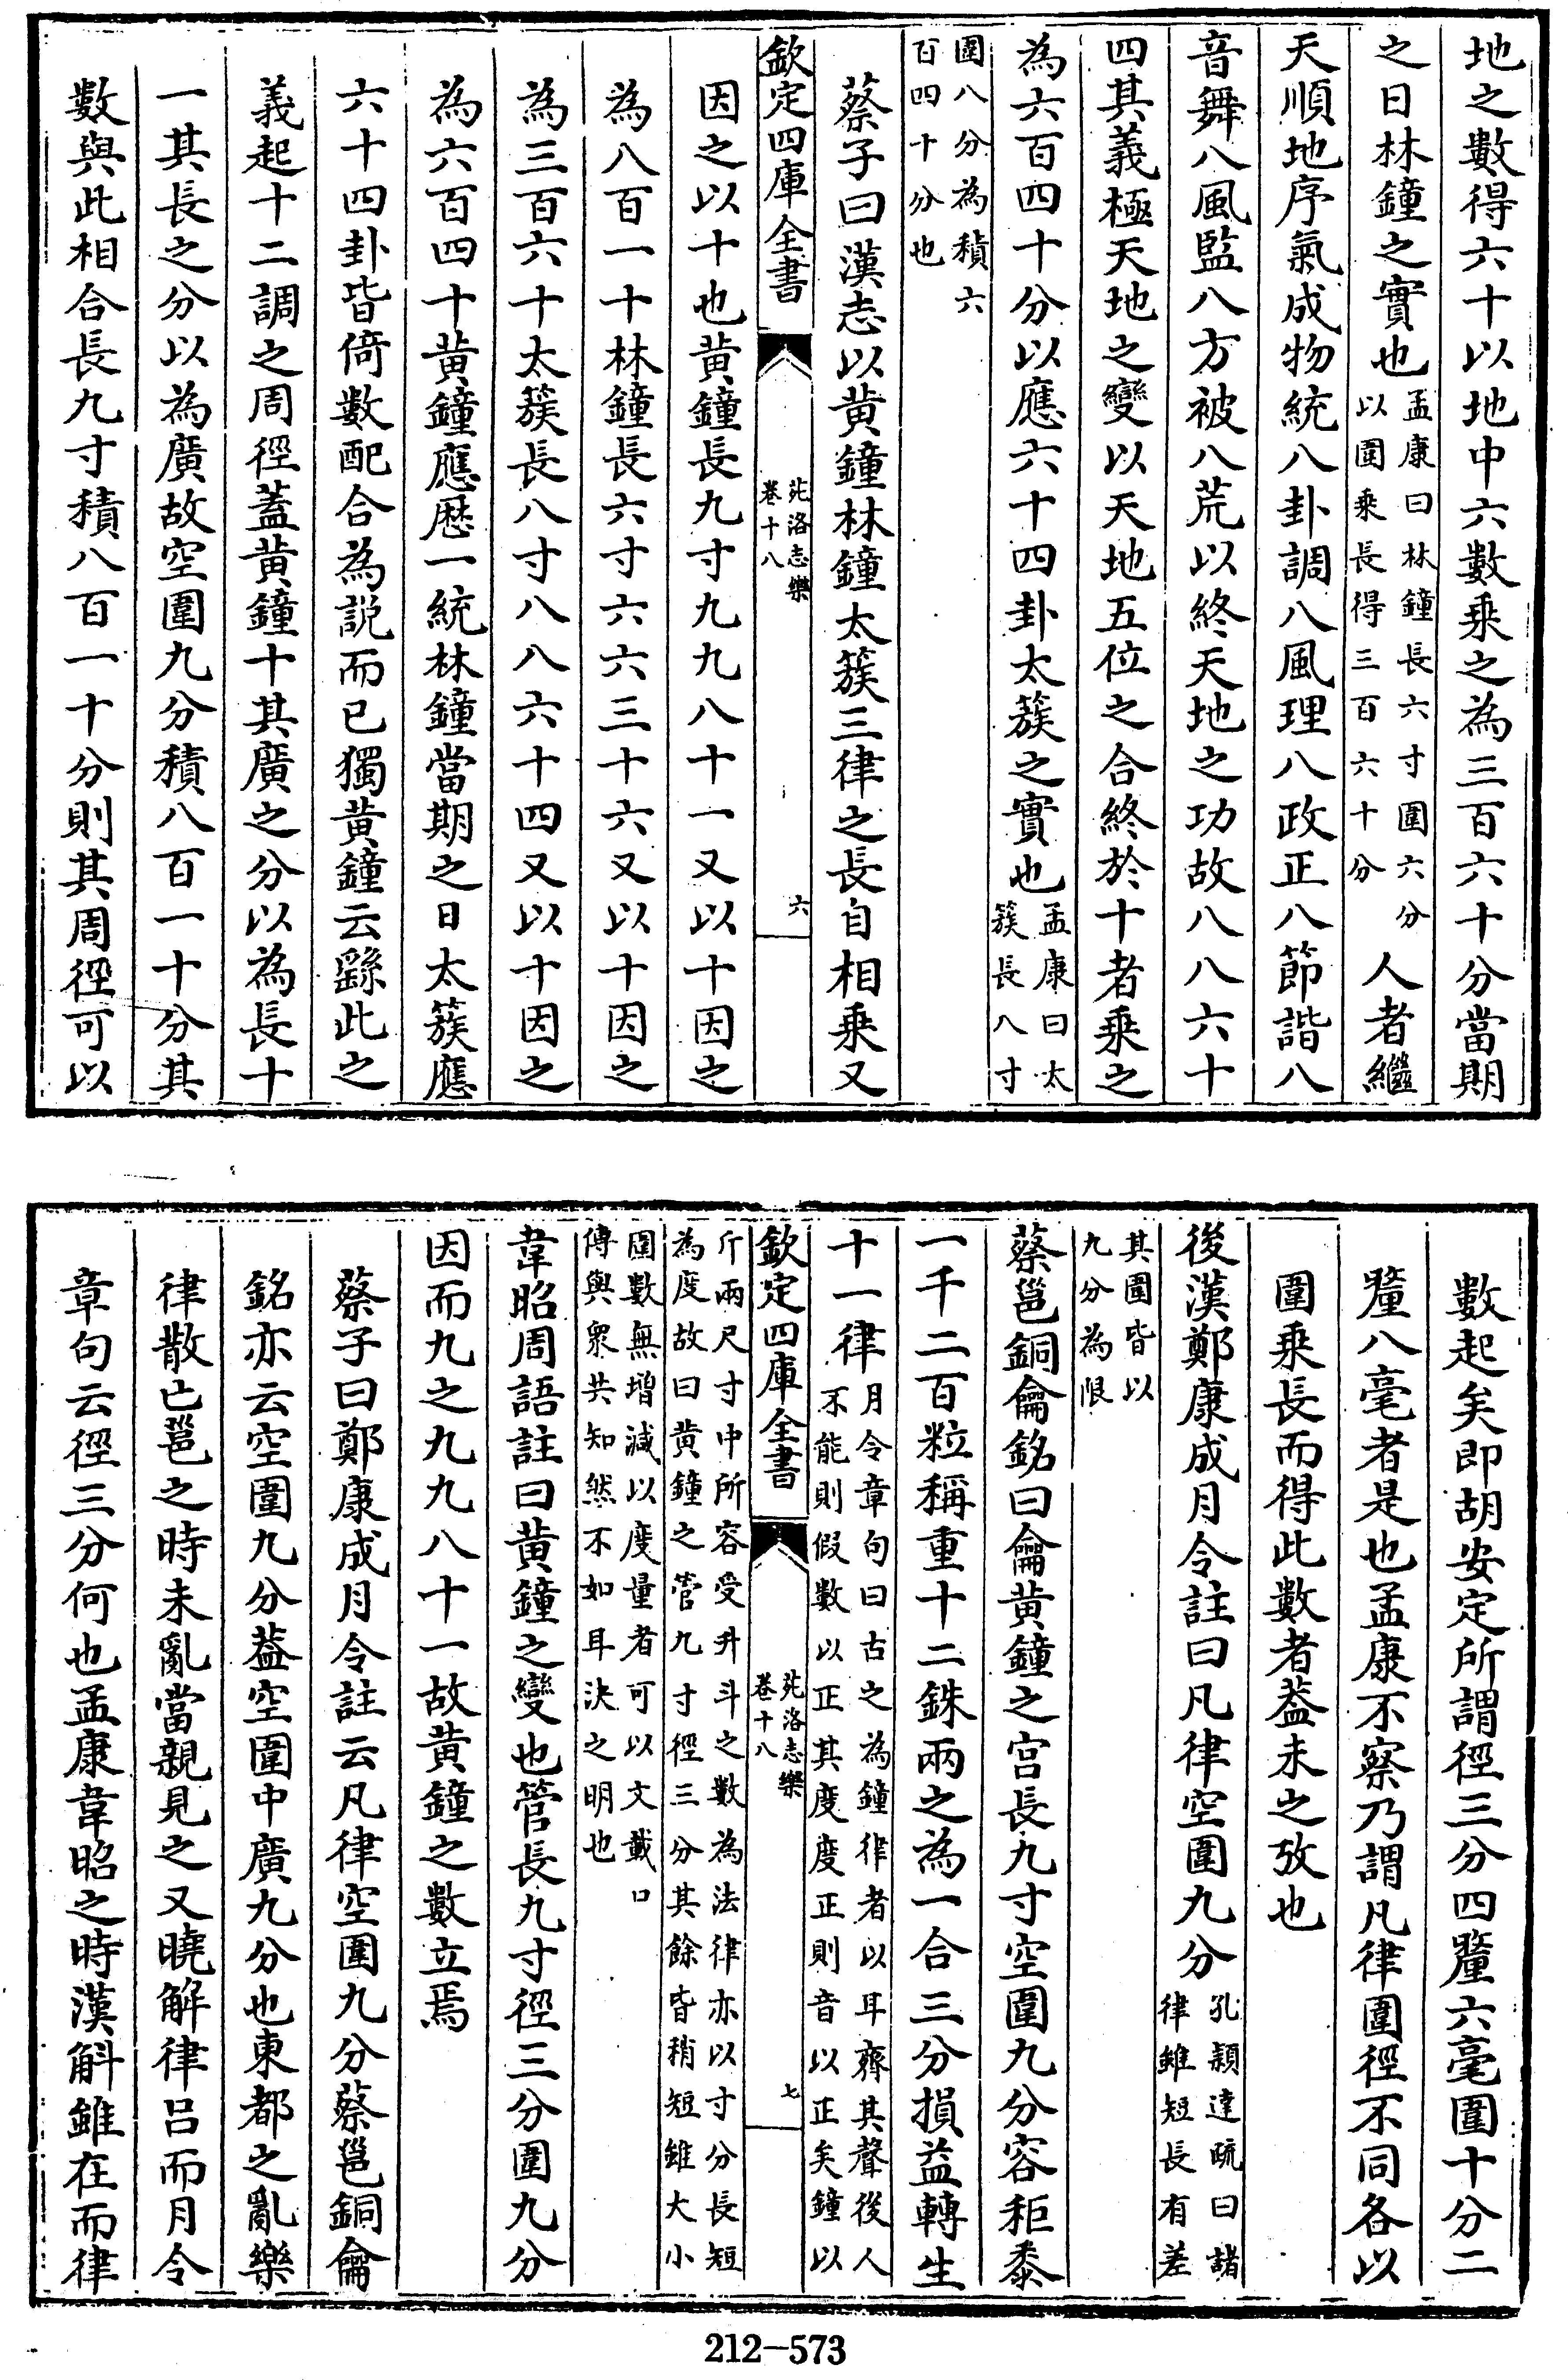 地之數得六十以地中六數乘之為三百六十分當期
之日林鐘之實也孟康曰林鐘長六寸圍六分以圍乘長得三百六十分人者繼
天順地序氣成物統八卦調八風理八政正八節諧八
音舞八風監八方被八荒以終天地之功故八八六十
四其義極天地之變以天地五位之合終於十者乘之
為六百四十分以應六十四卦太簇之實也孟康曰太簇長八寸
圍八分為積六百四十分也
蔡子曰漢志以黃鐘林鐘太簇三律之長自相乘又
欽定四庫全書
苑洛志樂
卷十八
六
因之以十也黃鐘長九寸九九八十一又以十因之
為八百一十林鐘長六寸六六三十六又以十因之
為三百六十太簇長八寸八八六十四又以十因之
為六百四十黃鐘應厯一統林鐘當期之日太簇應
六十四卦皆倚數配合為說而已獨黃鐘云繇此之
義起十二調之周徑蓋黃鐘十其廣之分以為長十
一其長之分以為廣故空圍九分積八百一十分其
數與此相合長九寸積八百一十分則其周徑可以
數起矣即胡安定所謂徑三分四釐六毫圍十分二
釐八毫者是也孟康不察乃謂凡律圍徑不同各以
圍乘長而得此數者蓋未之攷也
後漢鄭康成月令註曰凡律空圍九分孔穎達疏曰諸律雖短長有差
其圍皆以九分為限
蔡邕銅龠銘曰龠黃鐘之宮長九寸空圍九分容秬黍
一千二百粒稱重十二銖兩之為一合三分損益轉生
十一律月令章句曰古之為鐘律者以耳齊其聲後人不能則假數以正其度度正則音以正矣鐘以
欽定四庫全書
苑洛志樂
卷十八
七
斤兩尺寸中所容受升斗之數為法律亦以寸分長短為度故曰黃鐘之管九寸徑三分其餘皆稍短雖大小
圍數無增減以度量者可以文載口傳與衆共知然不如耳決之明也
韋昭周語註曰黃鐘之變也管長九寸徑三分圍九分
因而九之九九八十一故黃鐘之數立焉
蔡子曰鄭康成月令註云凡律空圍九分蔡邕銅龠
銘亦云空圍九分蓋空圍中廣九分也東都之亂樂
律散亡邕之時未亂當親見之又曉解律呂而月令
章句云徑三分何也孟康韋昭之時漢斛雖在而律
212-573